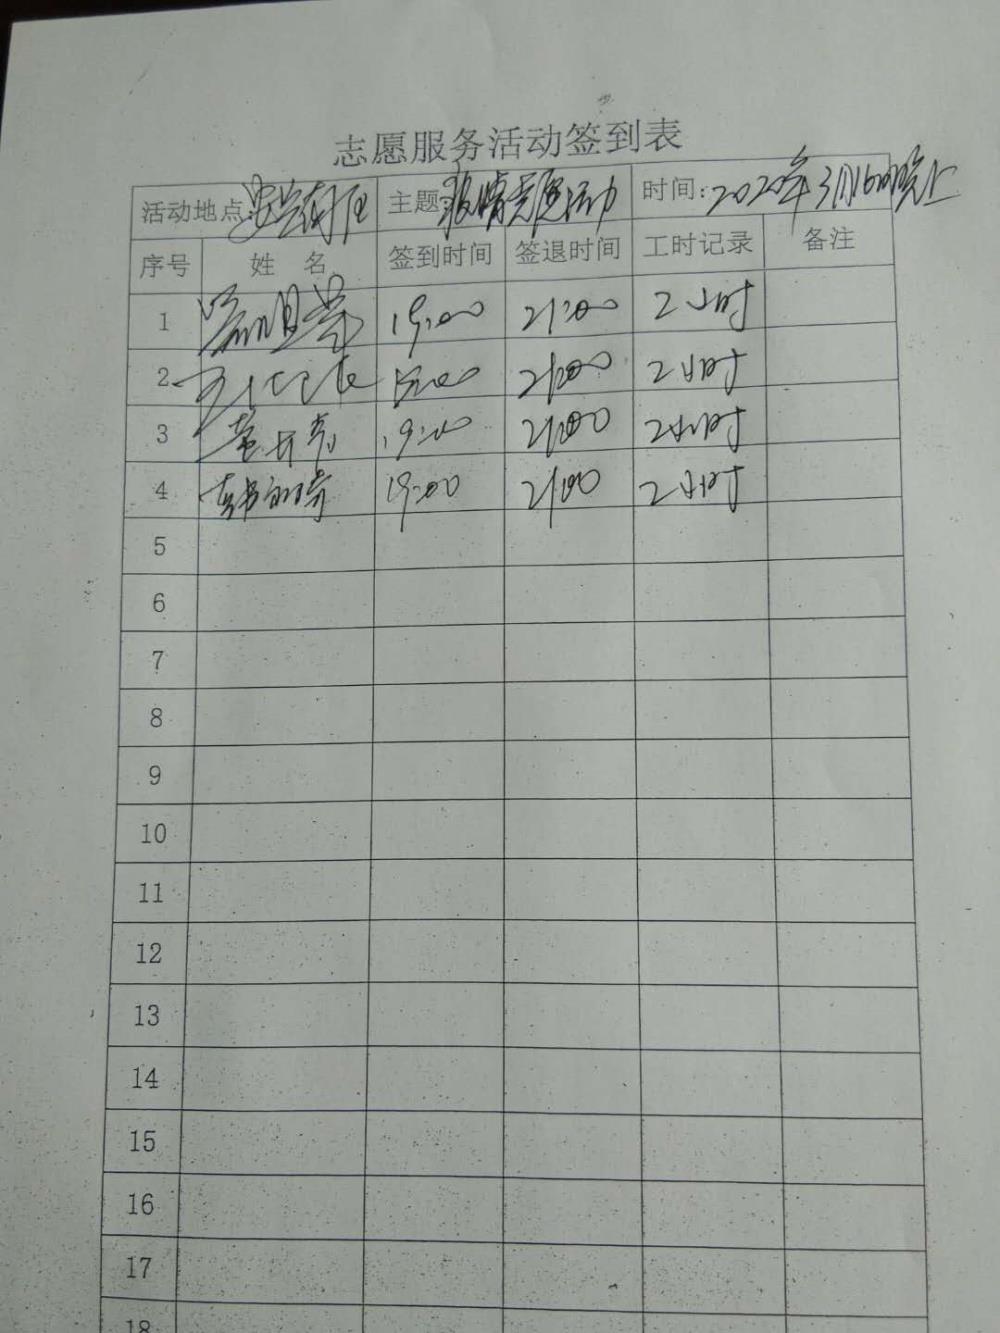 志愿服务活动签到表
活动地点: 主题: 活动 时间:2020年3月16日晚上
序号 姓 名 签到时间 签退时间 工时记录 备注
1 19:00 21:00 2小时
2 19:00 21:00 2小时
3 19:00 21:00 2小时
4 19:00 21:00 2小时
5
6
7
8
9
10
11
12
13
14
15
16
17
18